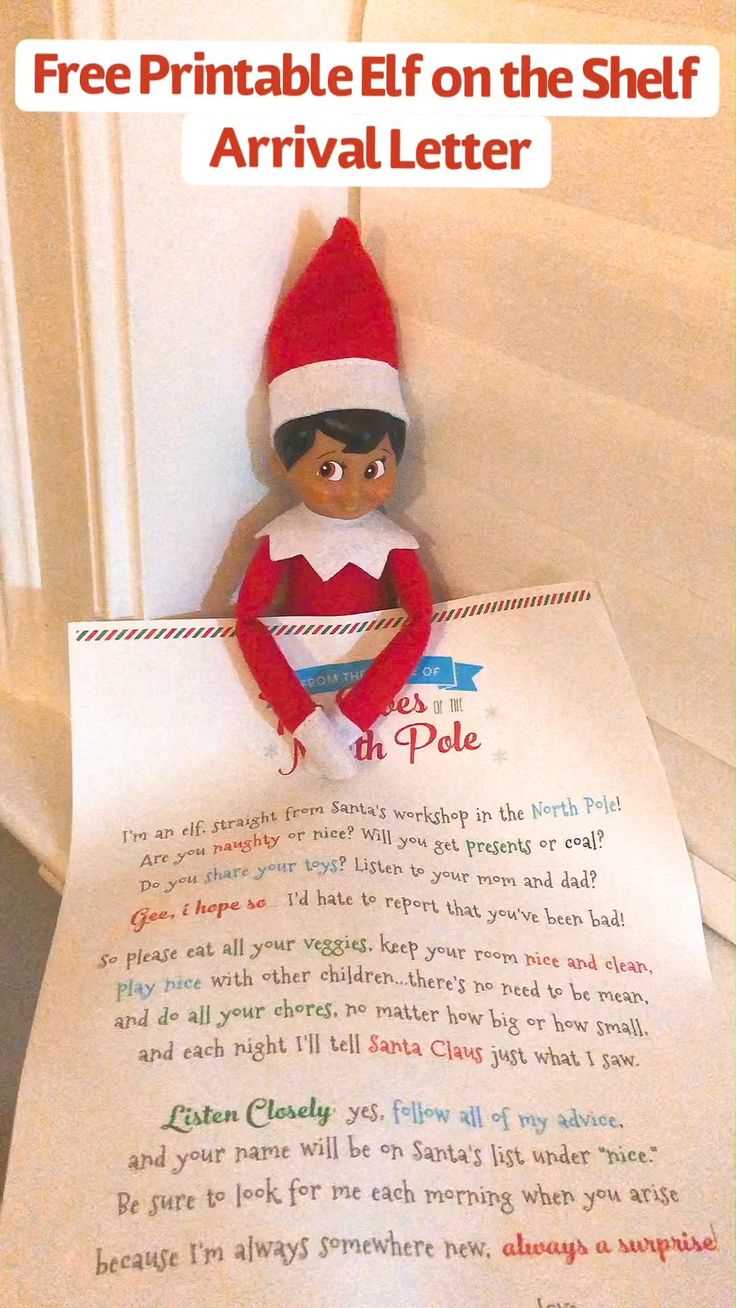 Free Printable Elf on the Shelf
Arrival Letter
FROM THE OF
OF THE
Pole
I'm an elf, straight from Santa's workshop in the North Pole!
Are you naughty or nice? Will you get presents or coal?
Do you share your toys? Listen to your mom and dad?
Gee, i hope so... I'd hate to report that you've been bad!
So please eat all your veggies, keep your room nice and clean,
play nice with other children...there's no need to be mean,
and do all your chores, no matter how big or how small,
and each night I'll tell Santa Claus just what I saw.
Listen Closely: yes, follow all of my advice,
and your name will be on Santa's list under "nice."
Be sure to look for me each morning when you arise
because I'm always somewhere new, always a surprise!